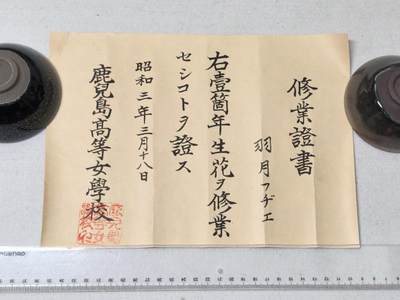 修業證書
羽月フヂエ
右壹箇年生花ヲ修業
セシコトヲ證ス
昭和三年三月十八日
鹿兒島高等女學校